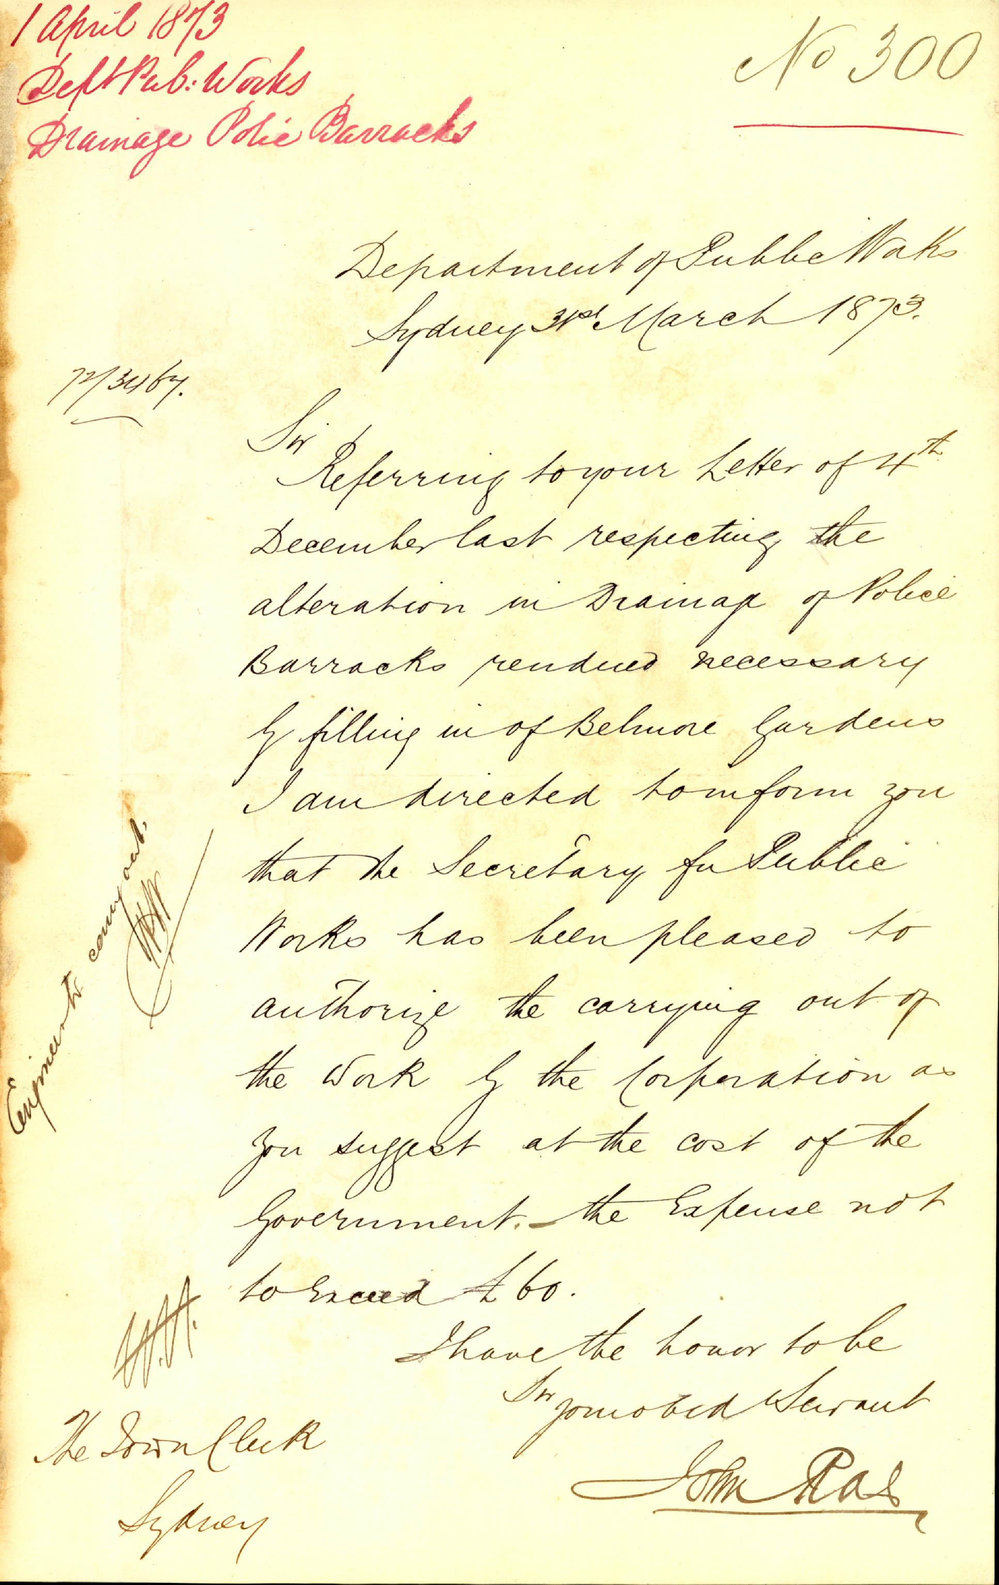 1 April 1873
Dept Pub: Works
Drainage Police Barracks
No 300
Department of Public Works
Sydney 31st March 1873.
72/3467.
Sir
Referring to your Letter of 4th
December last respecting the
alteration in Drainage of Police
Barracks rendered necessary
by filling in of Belmore Gardens
I am directed to inform you
that the Secretary for Public
Works has been pleased to
authorize the carrying out of
the Work by the Corporation as
you suggest at the cost of the
Government. – the Expense not
to Exceed £60.
I have the honor to be
Sir your obed Servant
John Rae
Engineer to carry out.
The Town Clerk
Sydney